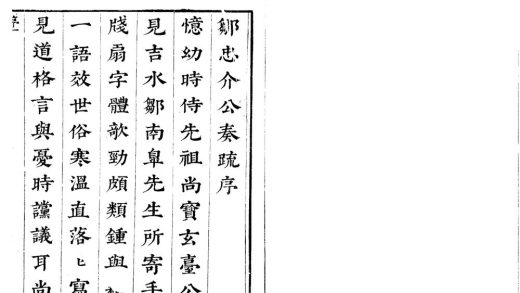 鄒忠介公奏疏序
憶幼時侍先祖尚寶玄臺公
見吉水鄒南臯先生所寄手
牋扇字體欹勁頗類鍾與
一語效世俗寒溫直落匕寫
見道格言與憂時讜議耳尚